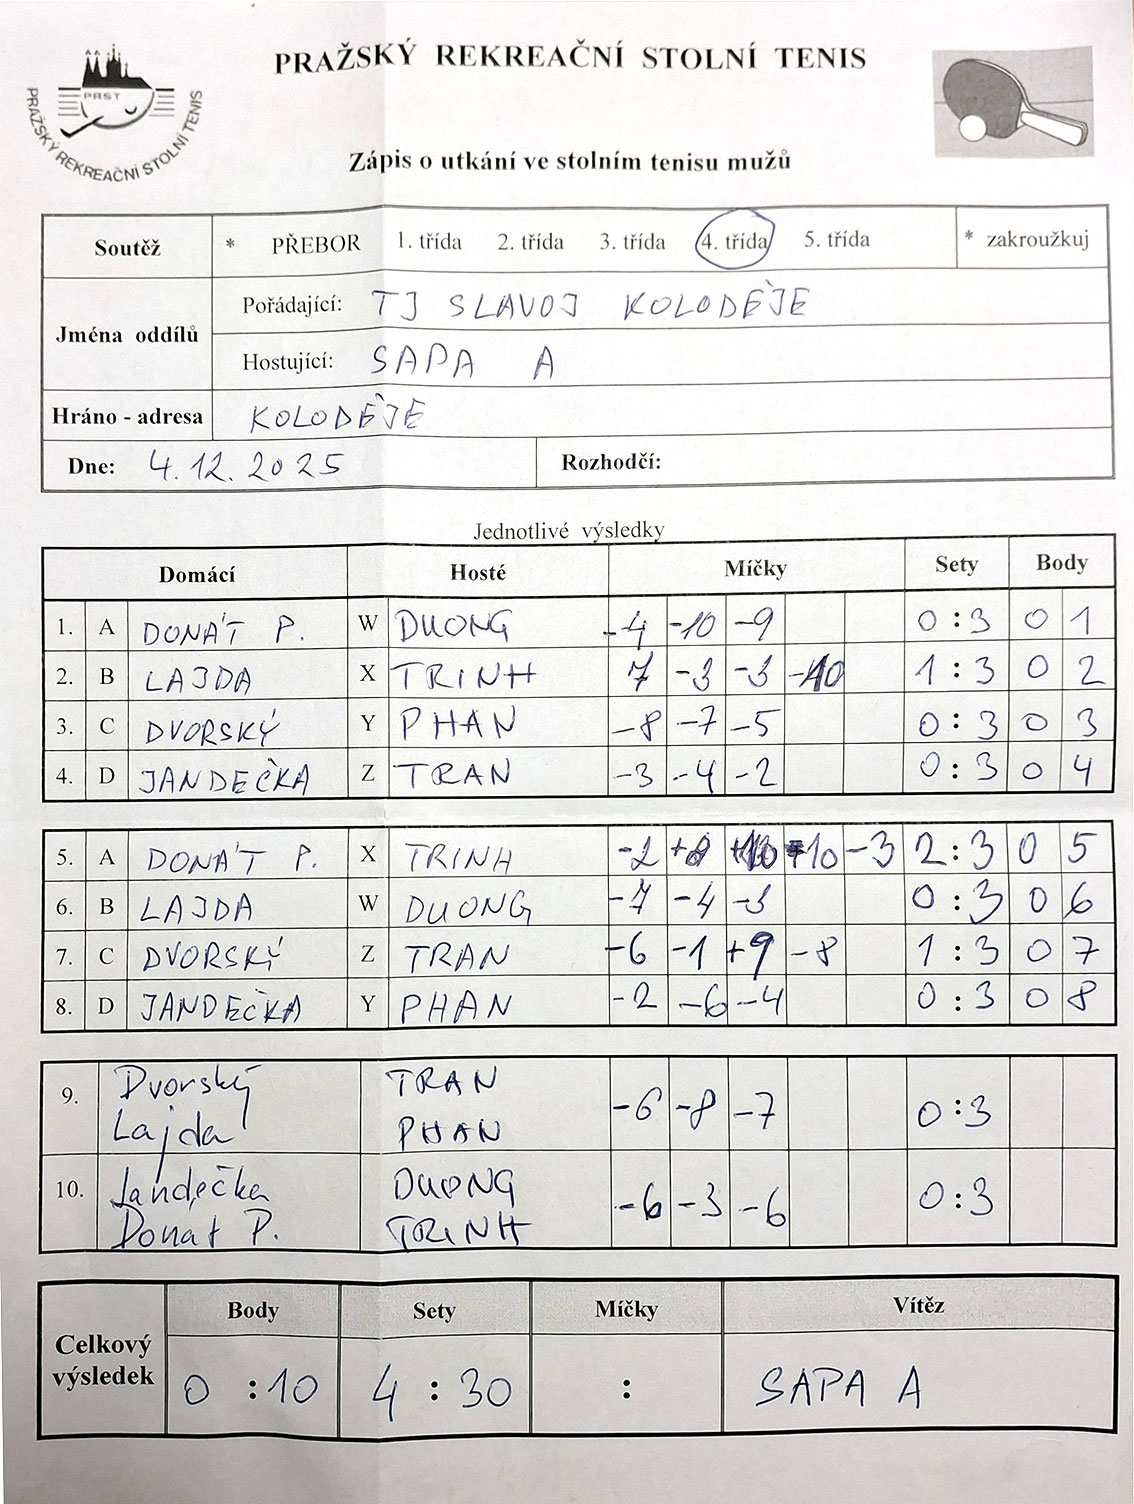 PRAŽSKÝ REKREAČNÍ STOLNÍ TENIS
PRST
PRAŽSKÝ REKREAČNÍ STOLNÍ TENIS
Zápis o utkání ve stolním tenisu mužů
Soutěž * PŘEBOR 1. třída 2. třída 3. třída 4. třída 5. třída * zakroužkuj
Jména oddílů
Pořádající: TJ SLAVOJ KOLODĚJE
Hostující: SAPA A
Hráno - adresa KOLODĚJE
Dne: 4.12.2025 Rozhodčí:
Jednotlivé výsledky
Domácí Hosté Míčky Sety Body
1. A DONÁT P. W DUONG -4 -10 -9 0 : 3 0 1
2. B LAJDA X TRINH 7 -3 -3 -10 1 : 3 0 2
3. C DVORSKÝ Y PHAN -8 -7 -5 0 : 3 0 3
4. D JANDEČKA Z TRAN -3 -4 -2 0 : 3 0 4
5. A DONÁT P. X TRINH -2 +8 +10 -3 2 : 3 0 5
6. B LAJDA W DUONG -7 -4 -3 0 : 3 0 6
7. C DVORSKÝ Z TRAN -6 -1 +9 -8 1 : 3 0 7
8. D JANDEČKA Y PHAN -2 -6 -4 0 : 3 0 8
9. Dvorský TRAN -6 -8 -7 0 : 3
Lajda PHAN
10. Jandečka DUONG -6 -3 -6 0 : 3
Donat P. TRINH
Celkový výsledek
Body Sety Míčky Vítěz
0 : 10 4 : 30 : SAPA A